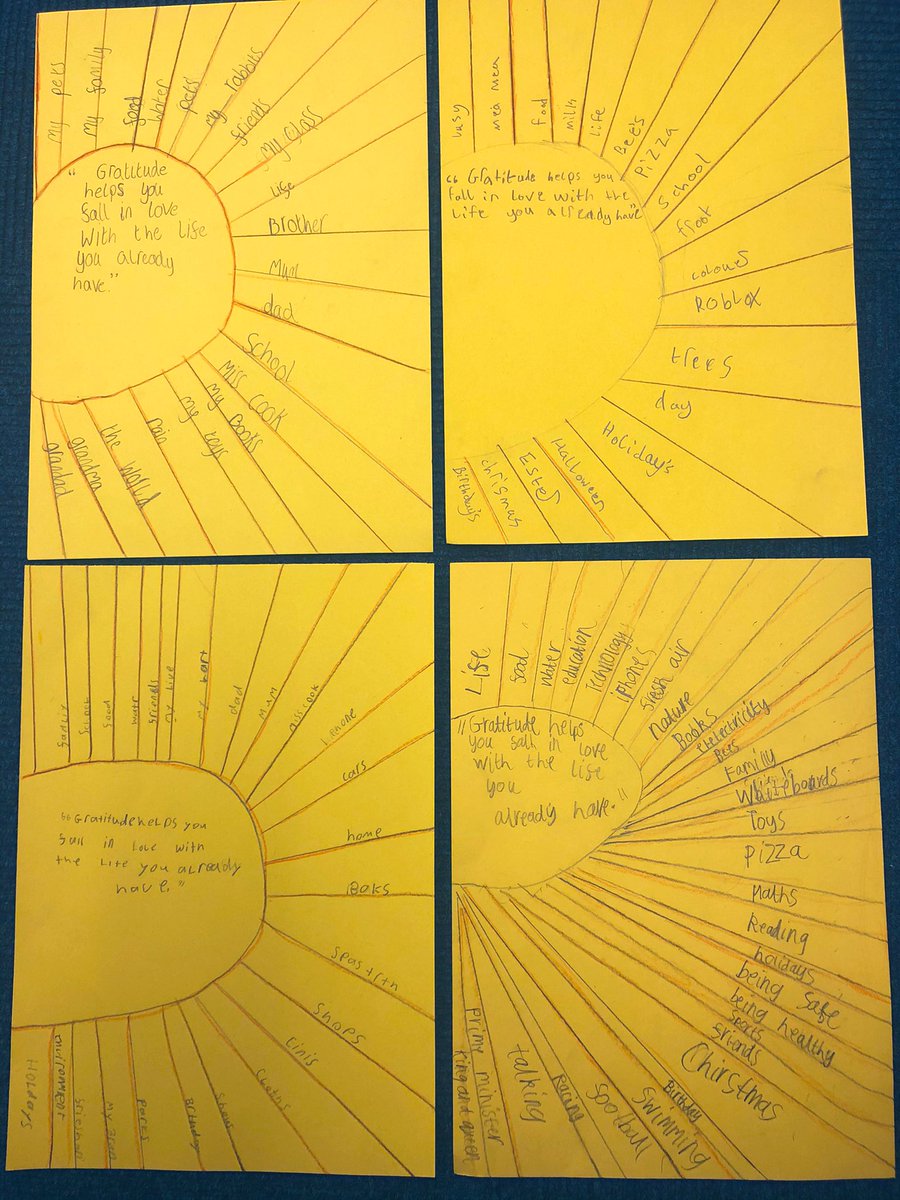 my pets
my family
food
water
pets
my rabbits
friends
My class
life
Brother
Mum
dad
School
Miss Cook
my Books
my toys
rain
the world
grandma
grandad
" Gratitude
helps you
fall in love
With the life
you already
have."
food
milk
life
Bee's
Pizza
School
froot
colours
Roblox
trees
day
Holiday's
Halloween
Ester
chrismas
Birthday's
" Gratitude helps you
fall in love with the
life you already have"
food
water
friends
my live
dad
Miss cook
cars
home
Boks
Shops
Holdays
"Gratitude helps you
fall in love with
the life you already
have."
Life
food
water
education
technology
iphones
fresh air
nature
Books
Bees
Family
Whiteboards
Toys
Pizza
Maths
Reading
holidays
being safe
being healthy
Sports
friends
Chirstmas
Birthday
Swimming
football
Racing
talking
Primy minister
King and queen
"Gratitude helps
you fall in love
with the life
you
already have."